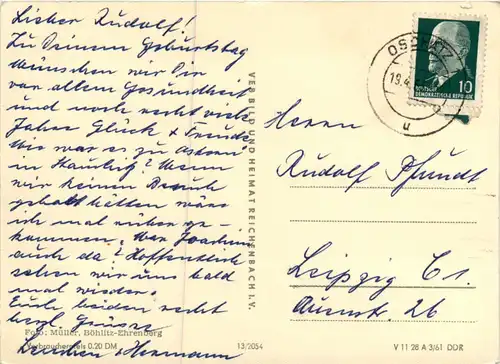 Lieber Rudolf!
Zu Deinem Geburtstag
wünschen wir Dir
vor allem Gesundheit
und noch recht viele
Jahre Glück + Freude.
Wie war es zu Ostern
in
? Wenn
wir keinen Besuch
gehabt hätten wäre
ich mal rüber ge-
kommen. War Joachim
auch da? Hoffentlich
sehen wir uns bald
mal wieder.
Euch beiden recht
herzl. Grüsse
Hermann
Foto: Müller, Böhlitz-Ehrenberg
Verbraucherpreis 0.20 DM
13/2054
VERLAG BILD UND HEIMAT REICHENBACH I. V.
OSCHATZ
19.4.
u
DEUTSCHE
DEMOKRATISCHE REPUBLIK
10
Herrn
Rudolf Pfundt
Leipzig C 1.
26
V 11 28 A 3/61 DDR